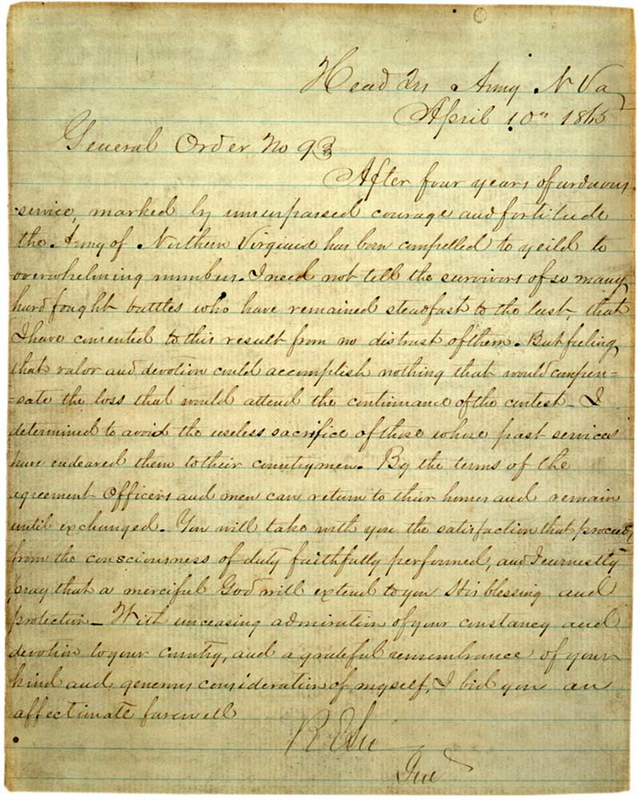 Head Qrs Army N Va
April 10th 1865
General Order No 9
After four years of arduous
service, marked by unsurpassed courage and fortitude
the Army of Northern Virginia has been compelled to yeild to
overwhelming number. I need not tell the survivors of so many
hard fought battles who have remained steadfast to the last that
I have consented to this result from no distrust of them. But feeling
that valor and devotion could accomplish nothing that would compen=
=sate the loss that would attend the continuance of the contest - I
determined to avoid the useless sacrifice of those whose past services
have endeared them to their countrymen. By the terms of the
agreement Officers and men can return to their homes and remain
until exchanged. You will take with you the satisfaction that proceeds
from the consciousness of duty faithfully performed, and I earnestly
pray that a merciful God will extend to you His blessing and
protection - With unceasing admiration of your constancy and
devotion to your country, and a grateful remembrance of your
kind and generous consideration of myself, I bid you an
affectionate farewell
R E Lee
Genl